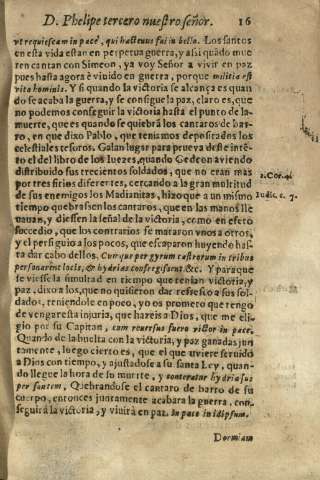 D. Phelipe tercero nuestro señor. 16
vt requiescam in pacè, qui hactenus fui in bello. Los santos
en esta vida estan en perpetua guerra, y asi quãdo mue
ren cantan con Simeon, ya voy Señor a viuir en paz
pues hasta agora è viuido en guerra, porque militia est
vita hominis. Y si quando la victoria se alcança es quan
do se acaba la guerra, y se consigue la paz, claro es, que
no podemos conseguir la victoria hasta el punto de la
muerte, que es quando se quiebrã los cantaros de bar-
ro, en que dixo Pablo, que teniamos depositados los
celestiales tesoros. Galan lugar para prueua deste intẽ-
to el del libro de los Iuezes, quando Gedeon aviendo
distribuido sus trecientos soldados, que no eran mas
por tres sitios diferentes, cercando a la gran multitud
de sus enemigos los Madianitas, hizo que a un mismo
tiempo quebrasen los cantaros, que en las manos lle
uauan, y diessen la señal de la victoria, como en efeto
succedio, que los contrarios se mataron vnos a otros,
y el persiguio a los pocos, que escaparon huyendo has-
ta dar cabo dellos. Cumque per gyrum castrorum in tribus
personarent locis, & hydrias confregissent. &c. Y para que
se viesse la simulad en tiempo que tenian victoria, y
paz, dixo a los, que no quisieron dar refresco a sus sol-
dados, teniendole en poco, yo os prometo que tengo
de vengar esta injuria, que hareis a Dios, que me eli-
gio por su Capitan, cum reuersus fuero victor in pace.
Quando dè la buelta con la victoria, y paz ganadas jun
tamente, luego cierto es, que el que uviere seruido
a Dios con tiempo, y ajustadose a su santa Ley, quan-
do llegue la hora de su muerte, y conteratur hydria su-
per fontem, Quebrandose el cantaro de barro de su
cuerpo, entonces juntamente acabara la guerra, con-
seguirà la victoria, y viuirà en paz. In pace in idipsum.
Dormiam
2. Cor. 4.
Iudic. c. 7.